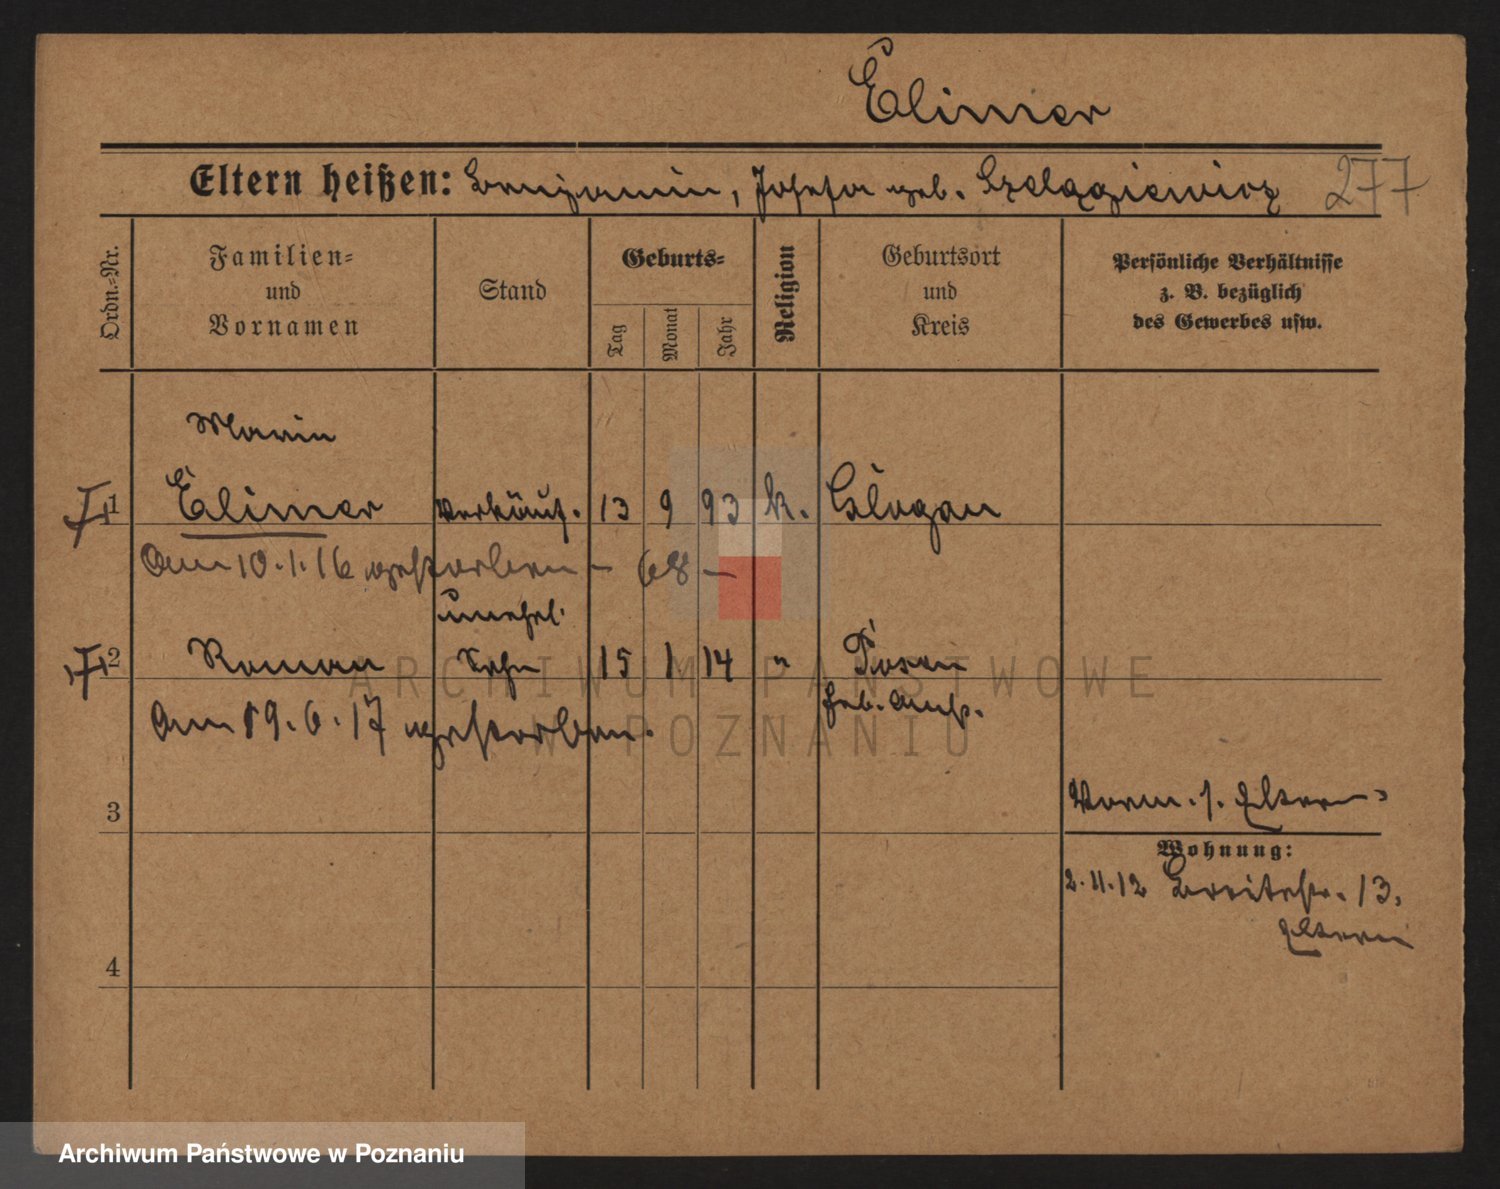 Elimer
Eltern heißen: Benjamin, Josefa geb. Szelązkiewicz 277
Ordn.-Nr.
Familien- und Vornamen
Stand
Geburts-
Tag
Monat
Jahr
Religion
Geburtsort und Kreis
Persönliche Verhältnisse z. B. bezüglich des Gewerbes usw.
Maria
1 Elimer Verkäuf. 13 9 93 k. Glogau
Am 10.1.16 gestorben – 68 –
unehel.
2 Roman Sohn 15 1 14 " Posen
Geb. Anst.
Am 19.6.17 gestorben.
3
Vorm. s. Eltern
Wohnung:
2.11.12 Breitestr. 13.
Eltern
4
ARCHIWUM PAŃSTWOWE
W POZNANIU
Archiwum Państwowe w Poznaniu